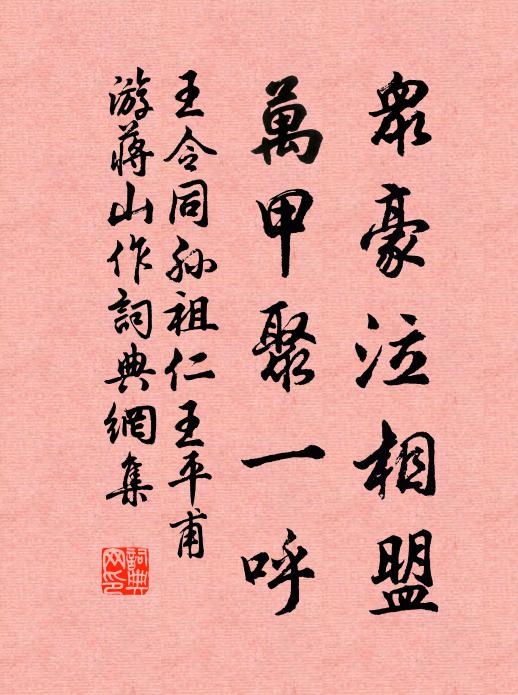 眾豪泣相盟
萬甲聚一呼
王令同孙祖仁王平甫
游蔣山作詞典網集
詞典网印